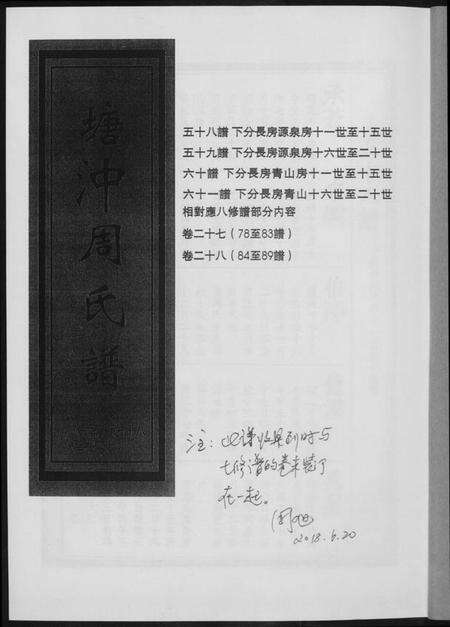 塘沖周氏譜
五十八譜 下分長房源泉房十一世至十五世
五十九譜 下分長房源泉房十六世至二十世
六十譜 下分長房青山房十一世至十五世
六十一譜 下分長房青山十六世至二十世
相對應八修譜部分内容
卷二十七（78至83譜）
卷二十八（84至89譜）
注：此譜收集到时与
七修谱的卷末
在一起。
2018.6.20